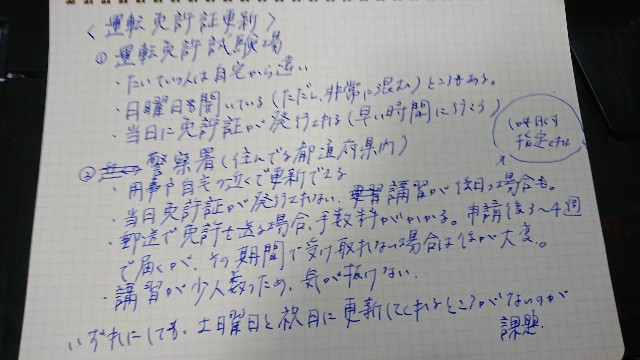 ＜運転免許証更新＞
① 運転免許試験場
・たいていの人は自宅から遠い
・日曜日も開いている(ただし、非常に混む)ところがある。
・当日に免許証が発行される(早い時間に行くこと)
② 警察署(住んでる都道府県内)
・用事や自宅の近くで更新できる
・当日免許証が発行されない、講習が後日の場合も。
・郵送で免許を送る場合、手数料がかかる。申請後3〜4週
で届くが、その期間で受け取れない場合は後が大変。
・講習が少人数のため、気が抜けない。
いずれにしても、土曜日と祝日に更新してくれるところがないのが
課題
指定され